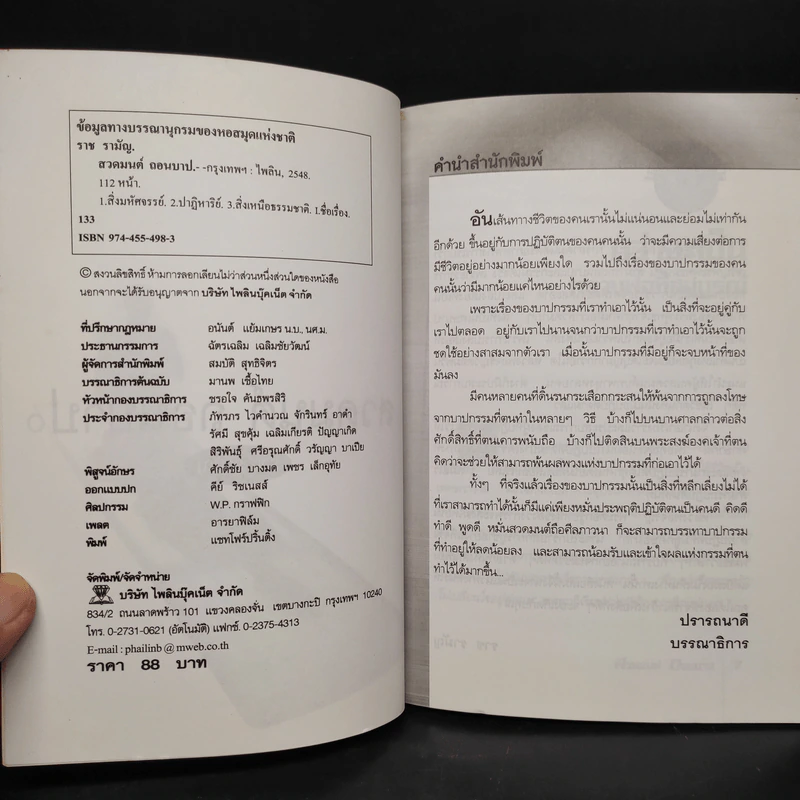 ข้อมูลทางบรรณานุกรมของหอสมุดแห่งชาติ
ราช รามัญ.
สวดมนต์ ถอนบาป.- -กรุงเทพฯ : ไพลิน, 2548.
112 หน้า.
1.สิ่งมหัศจรรย์. 2.ปาฏิหาริย์. 3.สิ่งเหนือธรรมชาติ. I.ชื่อเรื่อง.
133
ISBN 974-455-498-3
© สงวนลิขสิทธิ์ ห้ามการลอกเลียนไม่ว่าส่วนหนึ่งส่วนใดของหนังสือ
นอกจากจะได้รับอนุญาตจาก บริษัท ไพลินบุ๊คเน็ต จำกัด
ที่ปรึกษากฎหมาย อนันต์ แย้มเกษร น.บ., นศ.ม.
ประธานกรรมการ ฉัตรเฉลิม เฉลิมชัยวัฒน์
ผู้จัดการสำนักพิมพ์ สมบัติ สุทธิจิตร
บรรณาธิการต้นฉบับ มานพ เชื้อไทย
หัวหน้ากองบรรณาธิการ ชรอใจ คันธพรสิริ
ประจำกองบรรณาธิการ ภัทรภร ไวคำนวณ จักรินทร์ อาดำ
รัศมี สุขคุ้ม เฉลิมเกียรติ ปัญญาเกิด
สิริพันธุ์ ศรีอรุณศักดิ์ วรัญญา บาเปีย
พิสูจน์อักษร ศักดิ์ชัย บางมด เพชร เล็กอุทัย
ออกแบบปก ดีย์ ริชเนสส์
ศิลปกรรม W.P. กราฟฟิก
เพลต อารยาฟิล์ม
พิมพ์ แซทโฟร์ปริ้นติ้ง
จัดพิมพ์/จัดจำหน่าย
บริษัท ไพลินบุ๊คเน็ต จำกัด
834/2 ถนนลาดพร้าว 101 แขวงคลองจั่น เขตบางกะปิ กรุงเทพฯ 10240
โทร. 0-2731-0621 (อัตโนมัติ) แฟกซ์. 0-2375-4313
E-mail : phailinb @ mweb.co.th
ราคา 88 บาท
คำนำสำนักพิมพ์
อันเส้นทาางชีวิตของคนเรานั้นไม่แน่นอนและย่อมไม่เท่ากัน
อีกด้วย ขึ้นอยู่กับการปฏิบัติตนของคนคนนั้น ว่าจะมีความเสี่ยงต่อการ
มีชีวิตอยู่อย่างมากน้อยเพียงใด รวมไปถึงเรื่องของบาปกรรมของคน
คนนั้นว่ามีมากน้อยแค่ไหนอย่างไรด้วย
เพราะเรื่องของบาปกรรมที่เราทำเอาไว้นั้น เป็นสิ่งที่จะอยู่คู่กับ
เราไปตลอด อยู่กับเราไปนานจนกว่าบาปกรรมที่เราทำเอาไว้นั้นจะถูก
ชดใช้อย่างสาสมจากตัวเรา เมื่อนั้นบาปกรรมที่มีอยู่ก็จะจบหน้าที่ของ
มันลง
มีคนหลายคนที่ดิ้นรนกระเสือกกระสนให้พ้นจากการถูกลงโทษ
จากบาปกรรมที่ตนทำในหลายๆ วิธี บ้างก็ไปบนบานศาลกล่าวต่อสิ่ง
ศักดิ์สิทธิ์ที่ตนเคารพนับถือ บ้างก็ไปติดสินบนพระสงฆ์องคเจ้าที่ตน
คิดว่าจะช่วยให้สามารถพ้นผลพวงแห่งบาปกรรมที่ก่อเอาไว้ได้
ทั้งๆ ที่จริงแล้วเรื่องของบาปกรรมนั้นเป็นสิ่งที่หลีกเลี่ยงไม่ได้
ที่เราสามารถทำได้นั้นก็มีแค่เพียงหมั่นประพฤติปฏิบัติตนเป็นคนดี คิดดี
ทำดี พูดดี หมั่นสวดมนต์ถือศีลภาวนา ก็จะสามารถบรรเทาบาปกรรม
ที่ทำอยู่ให้ลดน้อยลง และสามารถน้อมรับและเข้าใจผลแห่งกรรมที่ตน
ทำไว้ได้มากขึ้น...
ปรารถนาดี
บรรณาธิการ